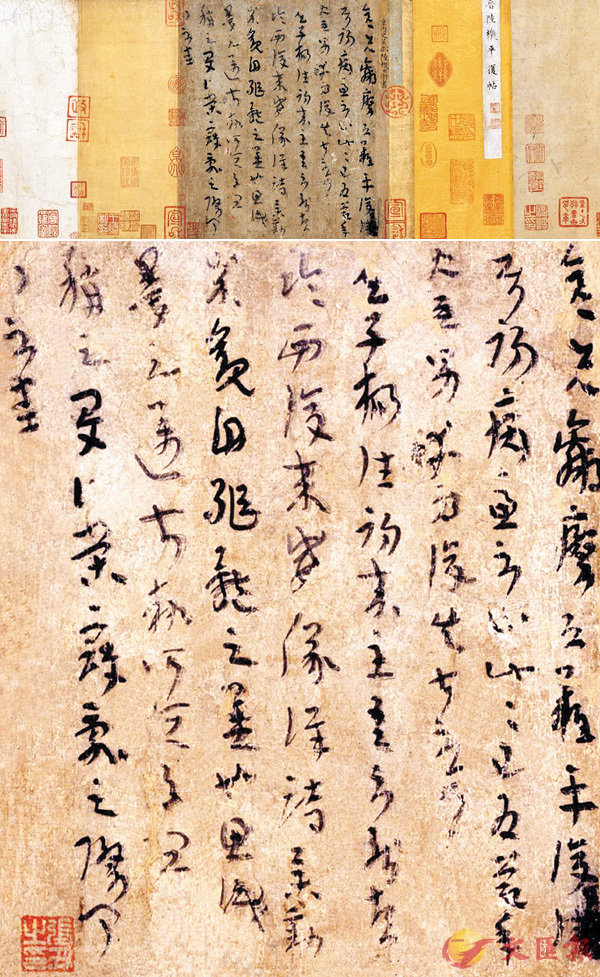 晉陸機平復帖
彥先羸瘵恐難平復往
屬初病慮不止此此已為慶承
使唯男幸為復失前憂耳
吳子楊往初來主吾不能盡
臨西復來威儀詳跱舉動
成觀自軀體之美也思識
量之邁前執所恒有宜
稱之夏伯榮寇亂之際聞
問不悉
文匯報